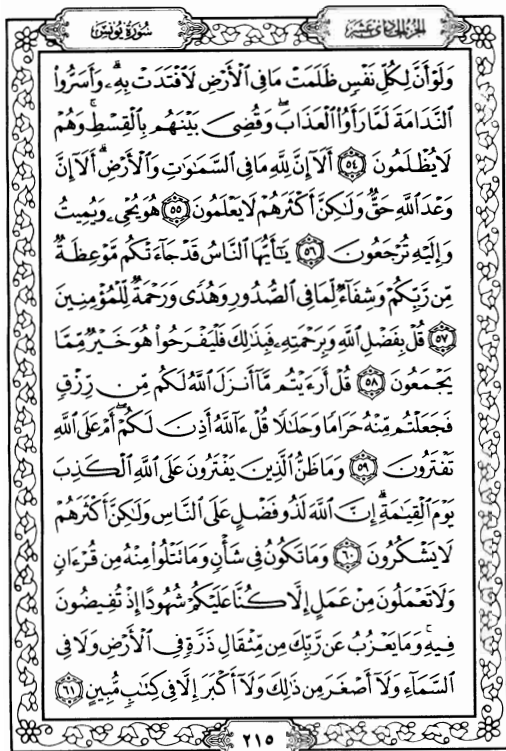 سُورَةُ يُونُسَ
الجُزءُ الحَادِي عَشَرَ
وَلَوْ أَنَّ لِكُلِّ نَفْسٍ ظَلَمَتْ مَا فِي الْأَرْضِ لَافْتَدَتْ بِهِۦ وَأَسَرُّوا۟
النَّدَامَةَ لَمَّا رَأَوُا۟ الْعَذَابَ ۖ وَقُضِيَ بَيْنَهُم بِالْقِسْطِ ۚ وَهُمْ
لَا يُظْلَمُونَ ٥٤ أَلَآ إِنَّ لِلَّهِ مَا فِي السَّمَـٰوَٰتِ وَالْأَرْضِ ۗ أَلَآ إِنَّ
وَعْدَ اللَّهِ حَقٌّ وَلَـٰكِنَّ أَكْثَرَهُمْ لَا يَعْلَمُونَ ٥٥ هُوَ يُحْىِۦ وَيُمِيتُ
وَإِلَيْهِ تُرْجَعُونَ ٥٦ يَـٰٓأَيُّهَا النَّاسُ قَدْ جَآءَتْكُم مَّوْعِظَةٌ
مِّن رَّبِّكُمْ وَشِفَآءٌ لِّمَا فِي الصُّدُورِ وَهُدًى وَرَحْمَةٌ لِّلْمُؤْمِنِينَ
٥٧ قُلْ بِفَضْلِ اللَّهِ وَبِرَحْمَتِهِۦ فَبِذَٰلِكَ فَلْيَفْرَحُوا۟ هُوَ خَيْرٌ مِّمَّا
يَجْمَعُونَ ٥٨ قُلْ أَرَءَيْتُم مَّآ أَنزَلَ اللَّهُ لَكُم مِّن رِّزْقٍ
فَجَعَلْتُم مِّنْهُ حَرَامًا وَحَلَـٰلًا قُلْ ءَآللَّهُ أَذِنَ لَكُمْ ۖ أَمْ عَلَى اللَّهِ
تَفْتَرُونَ ٥٩ وَمَا ظَنُّ الَّذِينَ يَفْتَرُونَ عَلَى اللَّهِ الْكَذِبَ
يَوْمَ الْقِيَـٰمَةِ ۗ إِنَّ اللَّهَ لَذُو فَضْلٍ عَلَى النَّاسِ وَلَـٰكِنَّ أَكْثَرَهُمْ
لَا يَشْكُرُونَ ٦٠ وَمَا تَكُونُ فِي شَأْنٍ وَمَا تَتْلُوا۟ مِنْهُ مِن قُرْءَانٍ
وَلَا تَعْمَلُونَ مِنْ عَمَلٍ إِلَّا كُنَّا عَلَيْكُمْ شُهُودًا إِذْ تُفِيضُونَ
فِيهِ ۚ وَمَا يَعْزُبُ عَن رَّبِّكَ مِن مِّثْقَالِ ذَرَّةٍ فِي الْأَرْضِ وَلَا فِي
السَّمَآءِ وَلَآ أَصْغَرَ مِن ذَٰلِكَ وَلَآ أَكْبَرَ إِلَّا فِي كِتَـٰبٍ مُّبِينٍ ٦١
٢١٥